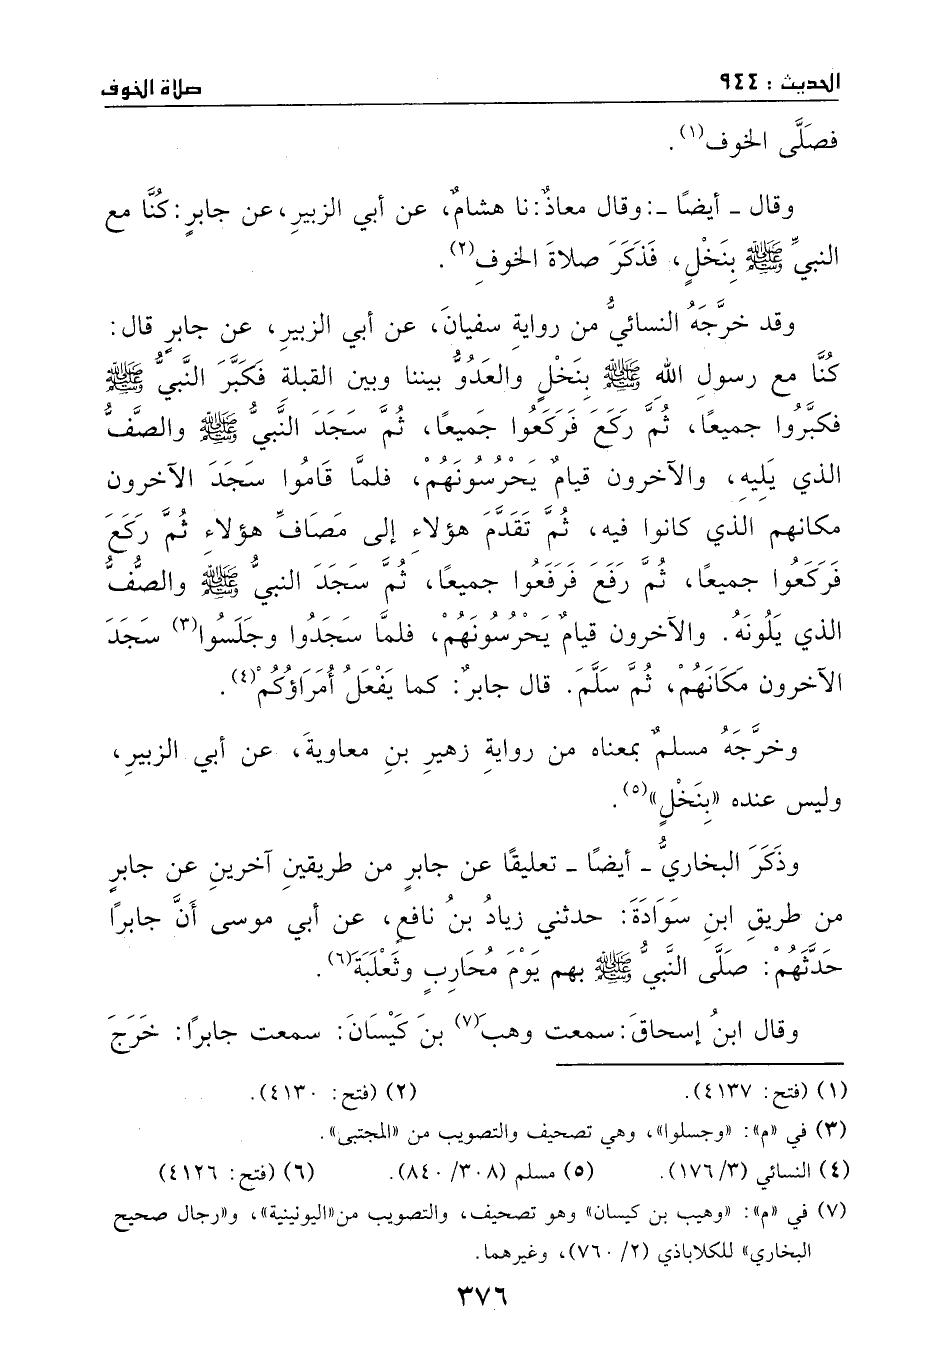 الحديث : ٩٤٤
صلاة الخوف
فصَلَّى الخوف(١).
وقال ـ أيضًا ـ: وقال معاذٌ: نا هشامٌ، عن أبي الزبيرِ، عن جابرٍ: كُنَّا مع
النبيِّ ﷺ بِنَخْلٍ، فَذَكَرَ صلاةَ الخوفِ(٢).
وقد خرَّجَهُ النسائيُّ من روايةِ سفيانَ، عن أبي الزبيرِ، عن جابرٍ قال:
كُنَّا مع رسولِ اللهِ ﷺ بِنَخْلٍ والعَدُوُّ بيننا وبين القبلةِ فَكَبَّرَ النَّبيُّ ﷺ
فكبَّرُوا جميعًا، ثُمَّ رَكَعَ فَرَكَعُوا جَميعًا، ثُمَّ سَجَدَ النَّبيُّ ﷺ والصَّفُّ
الذي يَلِيهِ، والآخرون قيامٌ يَحْرُسُونَهُمْ، فلمَّا قَامُوا سَجَدَ الآخرون
مكانهم الذي كانوا فيه، ثُمَّ تَقَدَّمَ هؤلاءِ إلى مَصَافِّ هؤلاءِ ثُمَّ رَكَعَ
فَرَكَعُوا جميعًا، ثُمَّ رَفَعَ فَرَفَعُوا جميعًا، ثُمَّ سَجَدَ النبيُّ ﷺ والصَّفُّ
الذي يَلُونَهُ. والآخرون قيامٌ يَحْرُسُونَهُمْ، فلمَّا سَجَدُوا وجَلَسُوا(٣) سَجَدَ
الآخرون مَكَانَهُمْ، ثُمَّ سَلَّمَ. قال جابرٌ: كما يَفْعَلُ أُمَرَاؤُكُمْ(٤).
وخرَّجَهُ مسلمٌ بمعناه من روايةِ زهيرِ بنِ معاويةَ، عن أبي الزبيرِ،
وليس عنده «بِنَخْلٍ»(٥).
وذَكَرَ البخاريُّ ـ أيضًا ـ تعليقًا عن جابرٍ من طريقينِ آخرينِ عن جابرٍ
من طريقِ ابنِ سَوَادَةَ: حدثني زيادُ بنُ نافعٍ، عن أبي موسى أَنَّ جابرًا
حَدَّثَهُمْ: صَلَّى النَّبيُّ ﷺ بهم يَوْمَ مُحَارِبٍ وثَعْلَبَةَ(٦).
وقال ابنُ إسحاقَ: سمعت وهبَ(٧) بنَ كَيْسَانَ: سمعت جابرًا: خَرَجَ
(١) (فتح: ٤١٣٧).
(٢) (فتح: ٤١٣٠).
(٣) في «م»: «وجسلوا»، وهي تصحيف والتصويب من «المجتبى».
(٤) النسائي (٣/ ١٧٦).
(٥) مسلم (٣٠٨/ ٨٤٠).
(٦) (فتح: ٤١٢٦)
(٧) في «م»: «وهيب بن كيسان» وهو تصحيف، والتصويب من«اليونينية»، و«رجال صحيح
البخاري» للكلاباذي (٢/ ٧٦٠)، وغيرهما.
٣٧٦